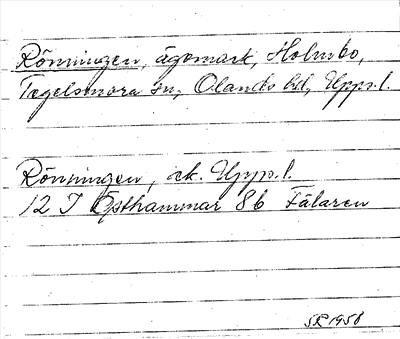 Rönningen, ägomark, Holmbo,
Tegelsmora sn, Olands hd, Upps.l.
Rönningen, ek. Upps.l.
12 I Östhammar 8b Fälaren
SR 1958